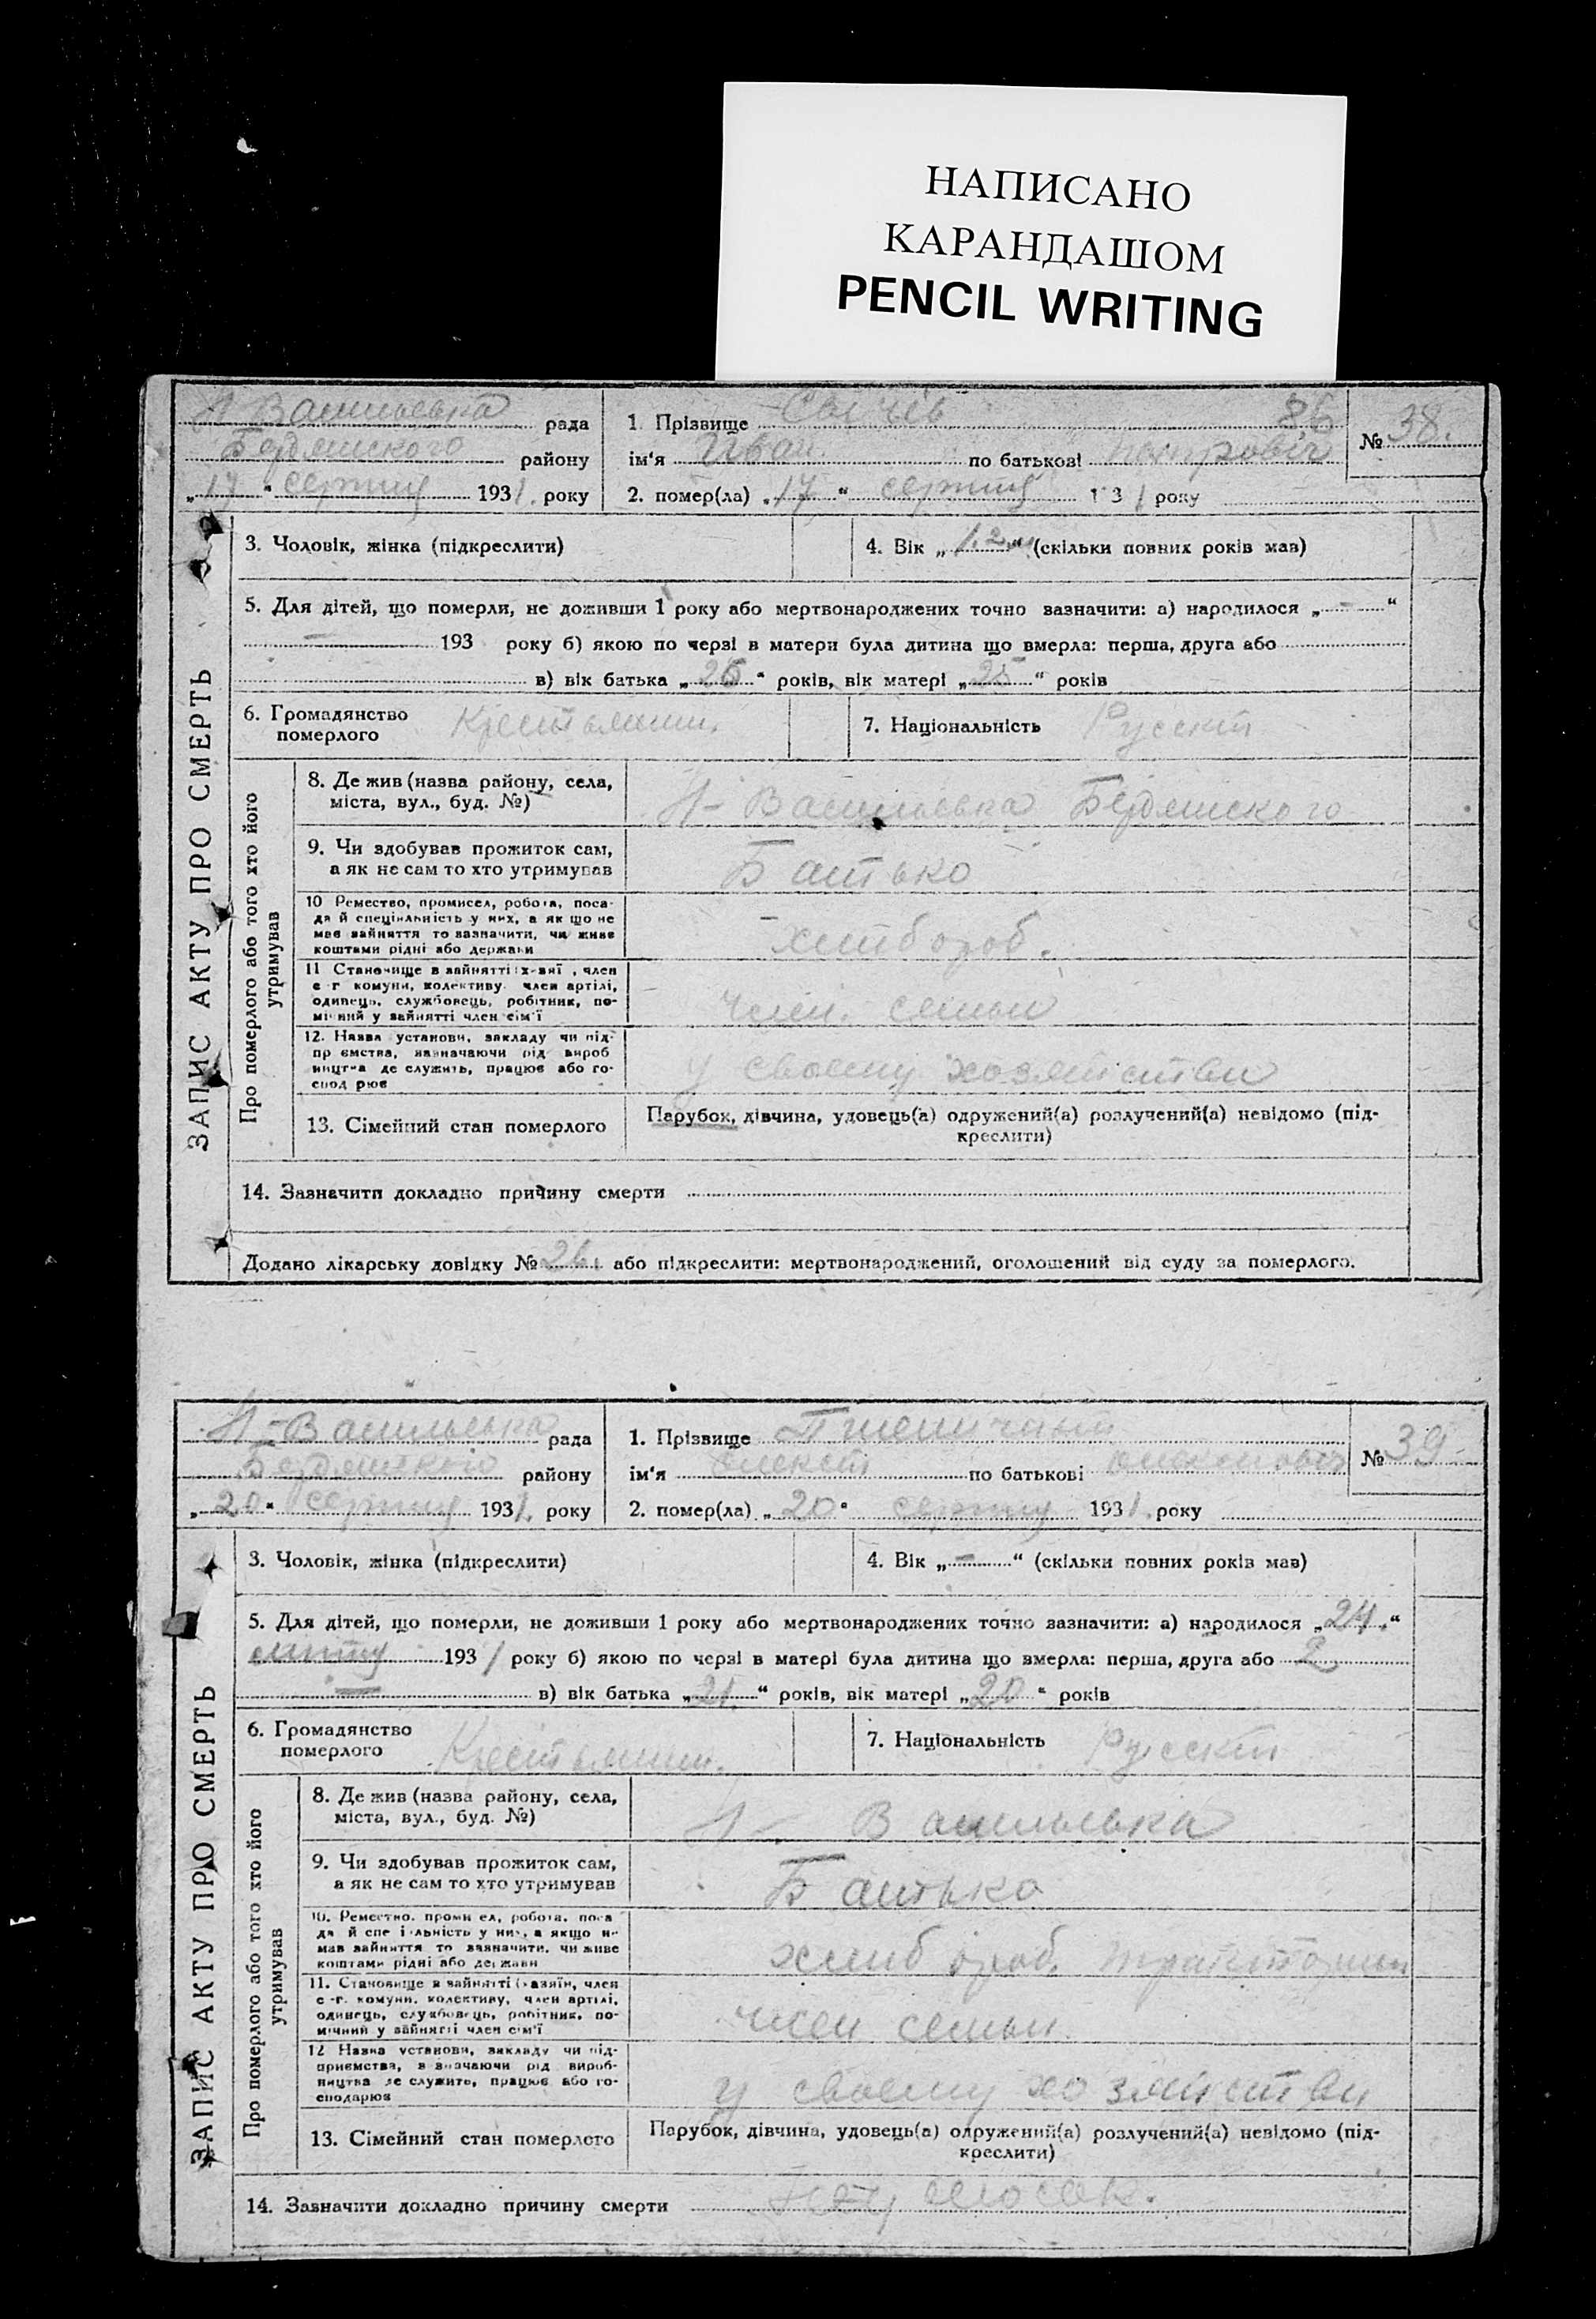 НАПИСАНО
КАРАНДАШОМ
PENCIL WRITING
Н Васильевка рада
Бердянского району
„17“ серпня 1931. року
1 Прізвище 86
ім‘я Иван по батькові Петрович
2. помер(ла) „17“ серпня 1931 року
№ 38.
ЗАПИС АКТУ ПРО СМЕРТЬ
3. Чоловік, жінка (підкреслити)
4. Вік „1.2 м“ (скільки повних років мав)
5. Для дітей, що померли, не доживши 1 року або мертвонароджених точно зазначити: а) народилося „ – “
– 193 року б) якою по черзі в матери була дитина що вмерла: перша, друга або
в) вік батька „26“ років, вік матері „25“ років
6. Громадянство
померлого Крестьянин.
7. Національність Русскй
Про померлого або того хто його
утримував
8. Де жив (назва району, села,
міста, вул., буд. №) Н-Васильевка Бердянского
9. Чи здобував прожиток сам,
а як не сам то хто утримував Батько
10 Ремество, промисел, робота, поса-
да й спеціяльність у них, а як що не
мав зайняття то зазначити, чи живе
коштами рідні або держави
хлібороб.
11 Становище в зайнятті: х-зяї , член
с г комуни, колективу член артілі,
одинець, службовець, робітник, по-
мічний у зайнятті член сім‘ї
член. семьи
12. Назва установи, закладу чи під-
пр ємства, зазначаючи рід вироб
ництва де служить, працює або го-
спод рює
у своему хозяйстви
13. Сімейний стан померлого
Парубок, дівчина, удовець(а) одружений(а) розлучений(а) невідомо (під-
креслити)
14. Зазначити докладно причину смерти
Додано лікарську довідку № 26. або підкреслити: мертвонароджений, оголошений від суду за померлого.
Н-Васильевка рада
Бердянского району
„20“ серпня 1931. року
1. Прізвище
ім‘я по батькові
2. помер(ла) „20“ серпня 1931. року
№ 39.
ЗАПИС АКТУ ПРО СМЕРТЬ
3. Чоловік, жінка (підкреслити)
4. Вік „ – “ (скільки повних років мав)
5. Для дітей, що померли, не доживши 1 року або мертвонароджених точно зазначити: а) народилося „24.“
1931 року б) якою по черзі в матері була дитина що вмерла: перша, друга або 2
– в) вік батька „21.“ років, вік матері „20“ років
6. Громадянство
померлого Крестьянин.
7. Національність Русскй
Про померлого або того хто його
утримував
8. Де жив (назва району, села,
міста, вул., буд. №) Н- Васильевка
9. Чи здобував прожиток сам,
а як не сам то хто утримував Батько
10. Ремество, проми ел, робота, поса
да й спе і льність у них, а якщо н-
мав зайняття то зазначити, чи живе
коштами рідні або держави
хлибороб.
11. Становище в зайнятті (хазяїн, член
с -г. комуни, колективу, член артілі,
одинець, службовець, робітник, по-
мічний у зайнятті член сім‘ї
член семьи
12 Назва установи, закладу чи під-
приємства, з значаючи рід вироб-
ництва де служить, працює або го-
сподарює
у своему хозяйстви
13. Сімейний стан померлого
Парубок, дівчина, удовець(а) одружений(а) розлучений(а) невідомо (під-
креслити)
14. Зазначити докладно причину смерти